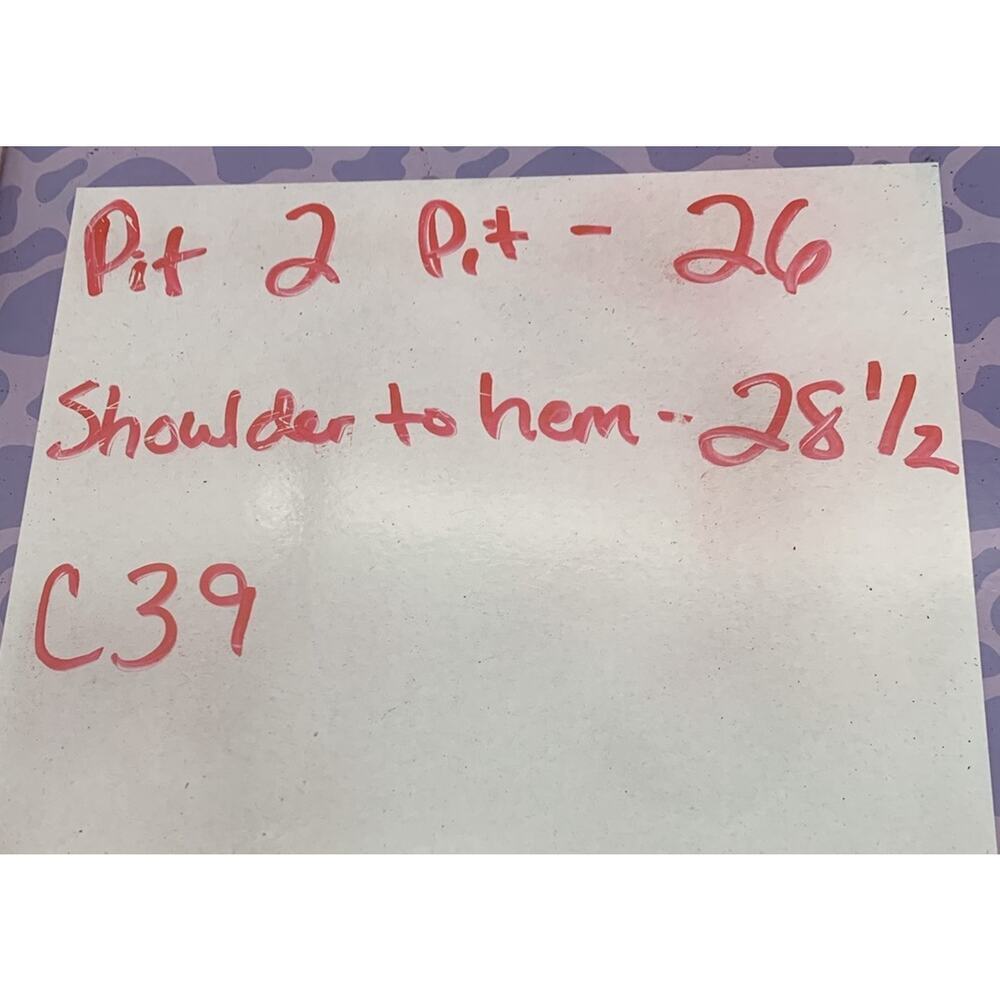 Pit 2 Pit - 26
Shoulder to hem - 28 1/2
C39